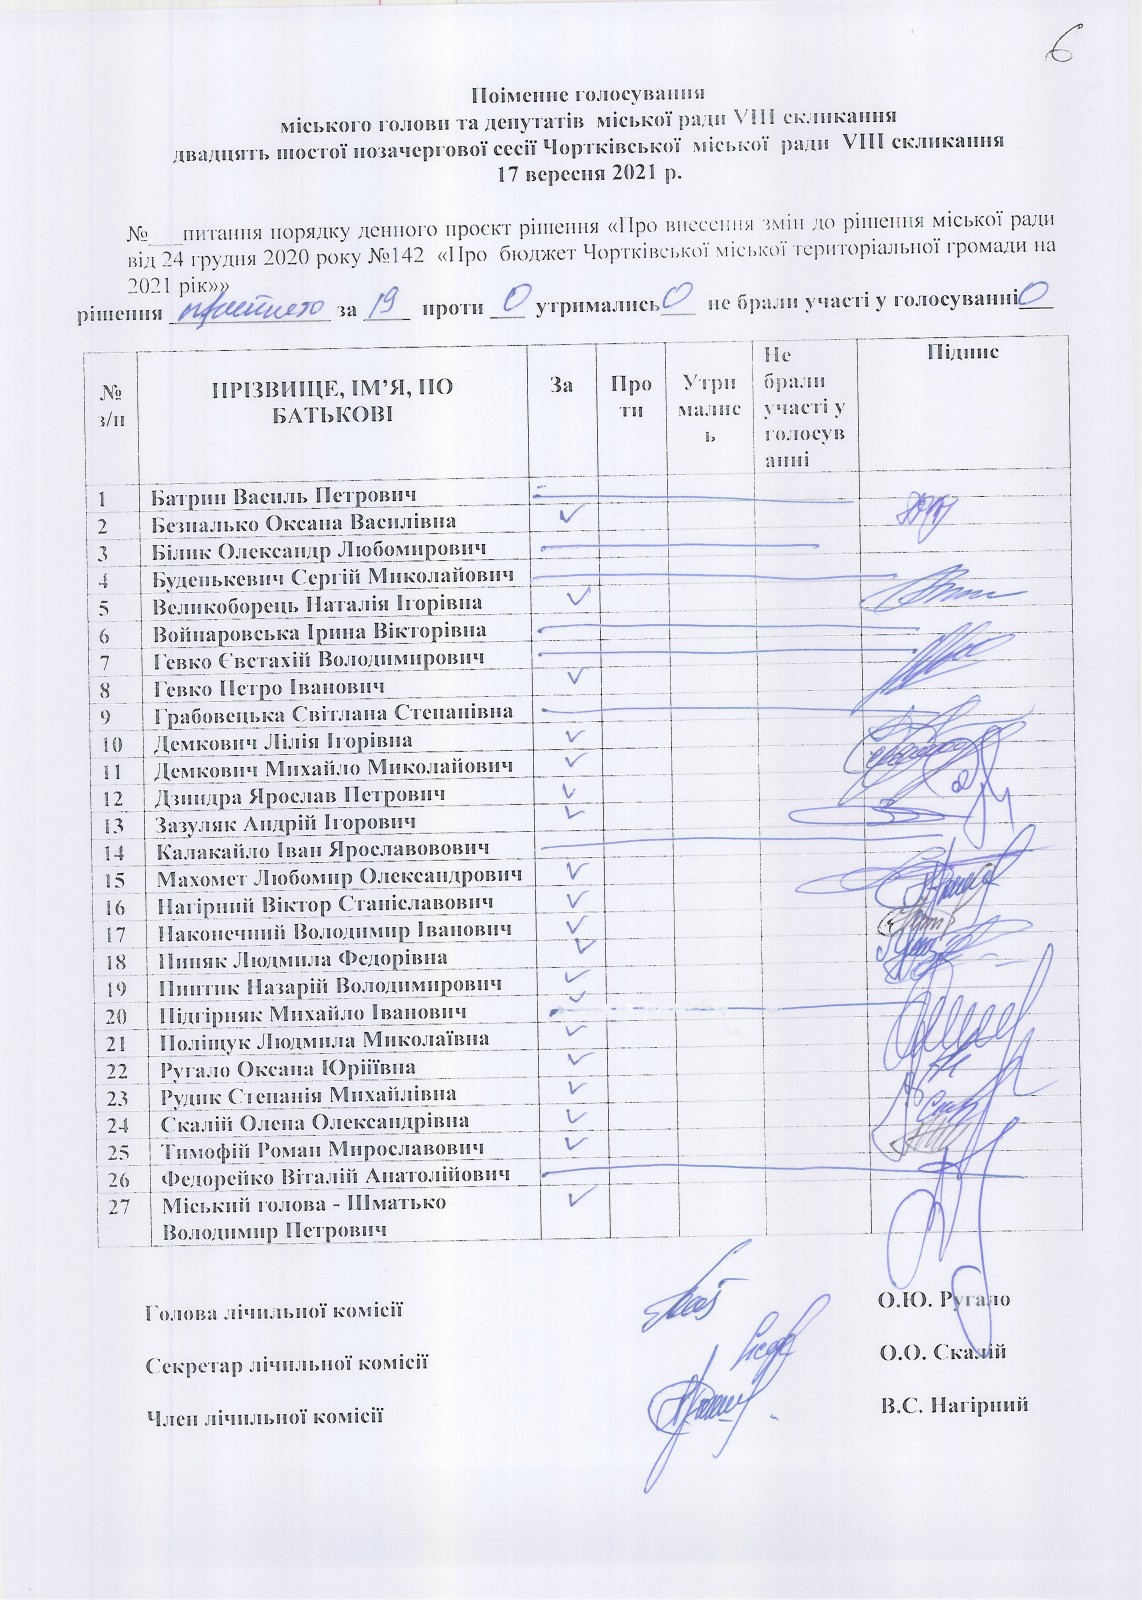 6
Поіменне голосування
міського голови та депутатів міської ради VIII скликання
двадцять шостої позачергової сесії Чортківської міської ради VIII скликання
17 вересня 2021 р.
№___питання порядку денного проєкт рішення «Про внесення змін до рішення міської ради
від 24 грудня 2020 року №142 «Про бюджет Чортківської міської територіальної громади на
2021 рік»»
рішення прийнято за 19 проти 0 утримались 0 не брали участі у голосуванні 0
№ з/п ПРІЗВИЩЕ, ІМ’Я, ПО БАТЬКОВІ За Про ти Утри малис ь Не брали участі у голосув анні Підпис
1 Батрин Василь Петрович
2 Безпалько Оксана Василівна ✓
3 Білик Олександр Любомирович
4 Буденькевич Сергій Миколайович
5 Великоборець Наталія Ігорівна ✓
6 Войнаровська Ірина Вікторівна
7 Гевко Євстахій Володимирович
8 Гевко Петро Іванович ✓
9 Грабовецька Світлана Степанівна
10 Демкович Лілія Ігорівна ✓
11 Демкович Михайло Миколайович ✓
12 Дзиндра Ярослав Петрович ✓
13 Зазуляк Андрій Ігорович ✓
14 Калакайло Іван Ярославовович
15 Махомет Любомир Олександрович ✓
16 Нагірний Віктор Станіславович ✓
17 Наконечний Володимир Іванович ✓
18 Пиняк Людмила Федорівна ✓
19 Пинтик Назарій Володимирович ✓
20 Підгірняк Михайло Іванович ✓
21 Поліщук Людмила Миколаївна ✓
22 Ругало Оксана Юріїївна ✓
23 Рудик Степанія Михайлівна ✓
24 Скалій Олена Олександрівна ✓
25 Тимофій Роман Мирославович ✓
26 Федорейко Віталій Анатолійович
27 Міський голова - Шматько ✓
Володимир Петрович
Голова лічильної комісії О.Ю. Ругало
Секретар лічильної комісії О.О. Скалій
Член лічильної комісії В.С. Нагірний